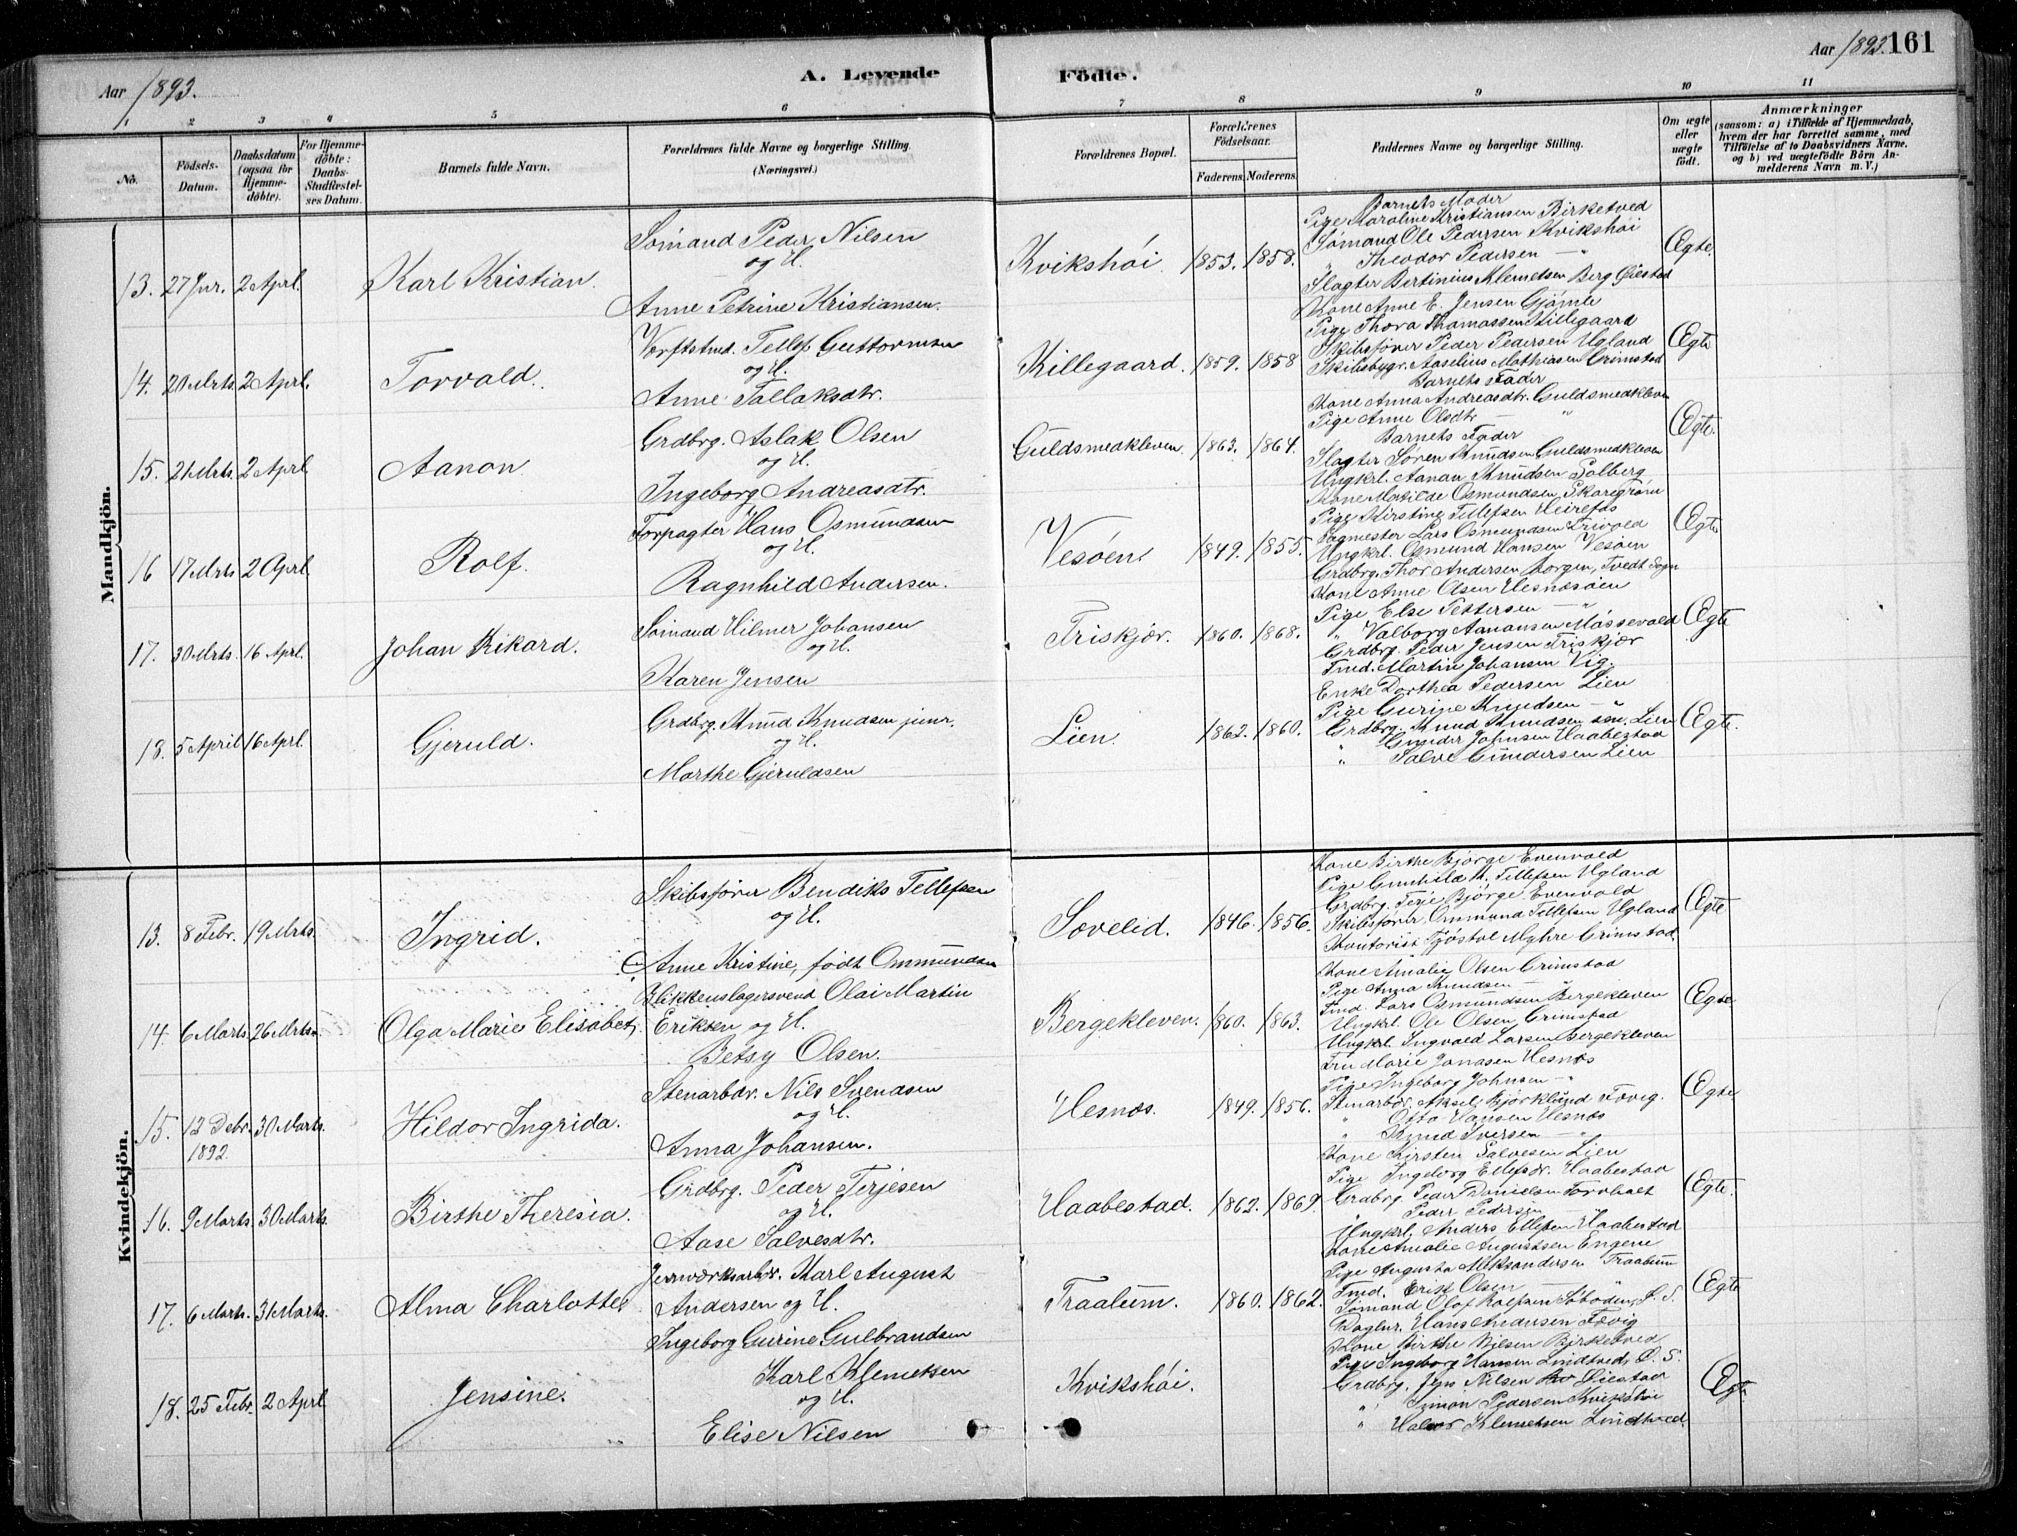 Aar 1893.
A. Levende
Födte.
Aar 1893. 161
1 2 3 4 5 6 7 8 9 10 11
No.
Födsels-
Datum.
Daabsdatum
(ogsaa for
Hjemme-
döbte).
For Hjemme-
döbte:
Daabs-
Stadfæstel-
ses Datum.
Barnets fulde Navn.
Forældrenes fulde Navne og borgerlige Stilling.
(Næringsvei.)
Forældrenes Bopæl.
Forældrenes
Födselsaar.
Faderens. Moderens.
Faddernes Navne og borgerlige Stilling.
Om ægte
eller
uægte
födt.
Anmærkninger
(saasom: a) i Tilfælde af Hjemmedaab,
hvem der har forrettet samme, med
Tilföielse af to Daabsvidners Navne.
og b) ved uægtefödte Börn An-
melderens Navn m. V.)
Mandkjön.
13. 27 Jnr. 2 Aprl. Karl Kristian.
Sømand Peder Nilsen
og H.
Anne Petrine Kristiansen.
Kvikshøi. 1853. 1858.
Barnets Moder
Pige Karoline Kristiansen Birketved
Sømand Ole Pedersen Kvikshøi
" Theodor Pedersen — "
Slagter Bertinius Klemetsen Berg Giestad
Ægte.
14. 20 Mrts. 2 Aprl. Torvald.
Værftstmd. Tellef Guttormsen
og H.
Anne Tallaksdtr.
Killegaard. 1859. 1858
Kone Anne E. Jensen Gjømle
Pige Thora Thomassen Killegaard
Skibsfører Peder Pedersen Ugland
Skibsbygr. Aaselius Mathiasen Grimstad
Barnets Fader
Ægte
15. 21 Mrts. 2 Aprl. Aanon.
Grdbrg. Aslak Olsen
og H.
Ingeborg Andreasdtr.
Guldsmedkleven. 1863. 1864.
Kone Anna Andreasdtr. Guldsmedkleven
Pige Anne Olsdtr — "
Barnets Fader
Slagter Søren Knudsen Guldsmedkleven
Ungkrl. Aanan Knudsen Solberg
Ægte.
16 17 Mrts 2 Aprl. Rolf.
Forpagter Hans Osmundsen
og H.
Ragnhild Andersen.
Vesøen. 1849. 1855.
Kone Matilde Osmundsen, Skaregrøm
Pige Kirstine Tellefsen Heirefos
Lars Osmundsen
Ungkrl. Osmund Hansen Vesøen
Grdbrg. Thor Andersen Torgen, Tvedt Sogn
Ægte
17. 30 Mrts. 16 Aprl. Johan Rikard.
Sømand Hilmer Johansen
og H.
Karen Jensen
Friskjær. 1860. 1868.
Kone Anne Olsen Hesnesøen
Pige Else Pettersen — "
" Valborg Aanansen Maassevold
Grdbrg. Peder Jensen Friskjær
Tmd. Martin Johansen Vig.
Ægte
18. 5 April 16 Aprl. Gjeruld.
Grdbrg. Knud Knudsen junr.
og H.
Marthe Gjeruldsen
Lien. 1862. 1860.
Enke Dorthea Pedersen Lien
Pige Gurine Knudsen — "
Grdbrg. Knud Knudsen sen. Lien
" Gunder Johnsen Haabestad
" Salve Gundersen Lien
Ægte.
Kvindekjön.
13. 8 Febr. 19 Mrts. Ingrid.
Skibsfører Bendiks Tellefsen
og H.
Anne Kristine, født Ommundsen
Sevelid. 1846. 1856.
Kone Birthe Bjørge Evenvold
Pige Gunhild M. Tellefsen Ugland
Grdbrg. Terje Bjørge Evenvold
Skibsfører Ommund Tellefsen Ugland
Kontorist Tjøstol Myhre Grimstad.
Ægte
14. 6 Marts. 26 Mrts. Olga Marie Elisabet.
Blikkenslagersvend Olai Martin
Eriksen og H.
Betsy Olsen.
Bergekleven. 1860. 1863.
Kone Amalie Olsen Grimstad
Pige Anna Knudsen — "
Tmd. Lars Osmundsen Bergekleven
Ungkrl. Ole Olsen Grimstad
Ungkrl. Ingvald Larsen Bergekleven
Ægte
15. 12 Debr. 1892. 30 Marts. Hildor Ingrida.
Stenarbdr. Nils Svendsen
og H.
Anna Johansen.
Hesnæs. 1849. 1856.
Fru Marie Jonasen Hesnæs
Pige Ingeborg Johnsen — "
Stenarbdr. Aksel Bjørklund Fævig.
" Otto Hansen Hesnæs
" Knud Iversen — "
Ægte
16. 9 Marts. 30 Marts. Birthe Theresia.
Grdbrg. Peder Terjesen
og H.
Aase Salvesdtr.
Haabestad. 1862. 1869.
Kone Kirsten Salvesen Lien
Pige Ingeborg Ellefsdr. Haabestad
Grdbrg. Peder Danielsen
" Peder Pedersen
Ungkrl. Anders Ellefsen Haabestad
Ægte.
17. 6 Marts. 31 Marts. Alma Charlotte
Jernværksarbdr. Karl August
Andersen og H.
Ingeborg Gurine Gulbrandsen
Traalum. 1860. 1862.
Kone Amalie Augustsen Engene
Pige Augusta Aleksandersen Traalum
Tmd. Erik Olsen — "
Sømand Olof
Daglnr. Hans Andersen Fævig
Ægte
18. 25 Febr. 2 April Jensine.
Karl Klemetsen
og H.
Elise Nilsen
Kvikshøi.
Kone Birthe Nilsen Birketved
Pige Ingeborg Hansen Lindtved, Ø. S.
Grdbrg. Jens Nilsen
" Simon Pedersen Kvikshøi
" Halvor Klemetsen Lindtved.
Ægte